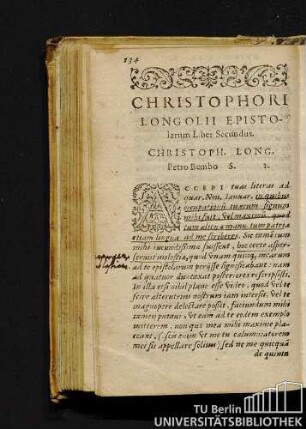 134
CHRISTOPHORI
LONGOLII EPISTO-
larum Liber Secundus.
CHRISTOPH. LONG.
Petro Bembo S. 1.
ACCEPI tuas literas ad
quar. Non. Ianuar.
mihi fuit. Vel maximū, quod
tum alicuius manu, tum patria
etiam lingua ad me scriberes. Sic tamē eum
mihi iucundissimæ fuissent, hoc certe asper-
serunt molestiæ, quod unam quinq; mearum
ad te epistolarum perijsse significabant: nam
ad quatuor duntaxat posteriores rescripsisti.
In illa etsi nihil plane esse video, quod vel te
scire alterutrius nostrum iam intersit. Vel te
magnopere delectare possit, faciundum mihi
tamen putaui, ut eam ad te eodem exemplo
mitterem, non quo mea mihi maxime pla-
ceant, (scis enim ut me tu calumniatorem
mei sis appellare solitus) sed ne me quicquã
de quinta
TU Berlin
UNIVERSITÄTSBIBLIOTHEK